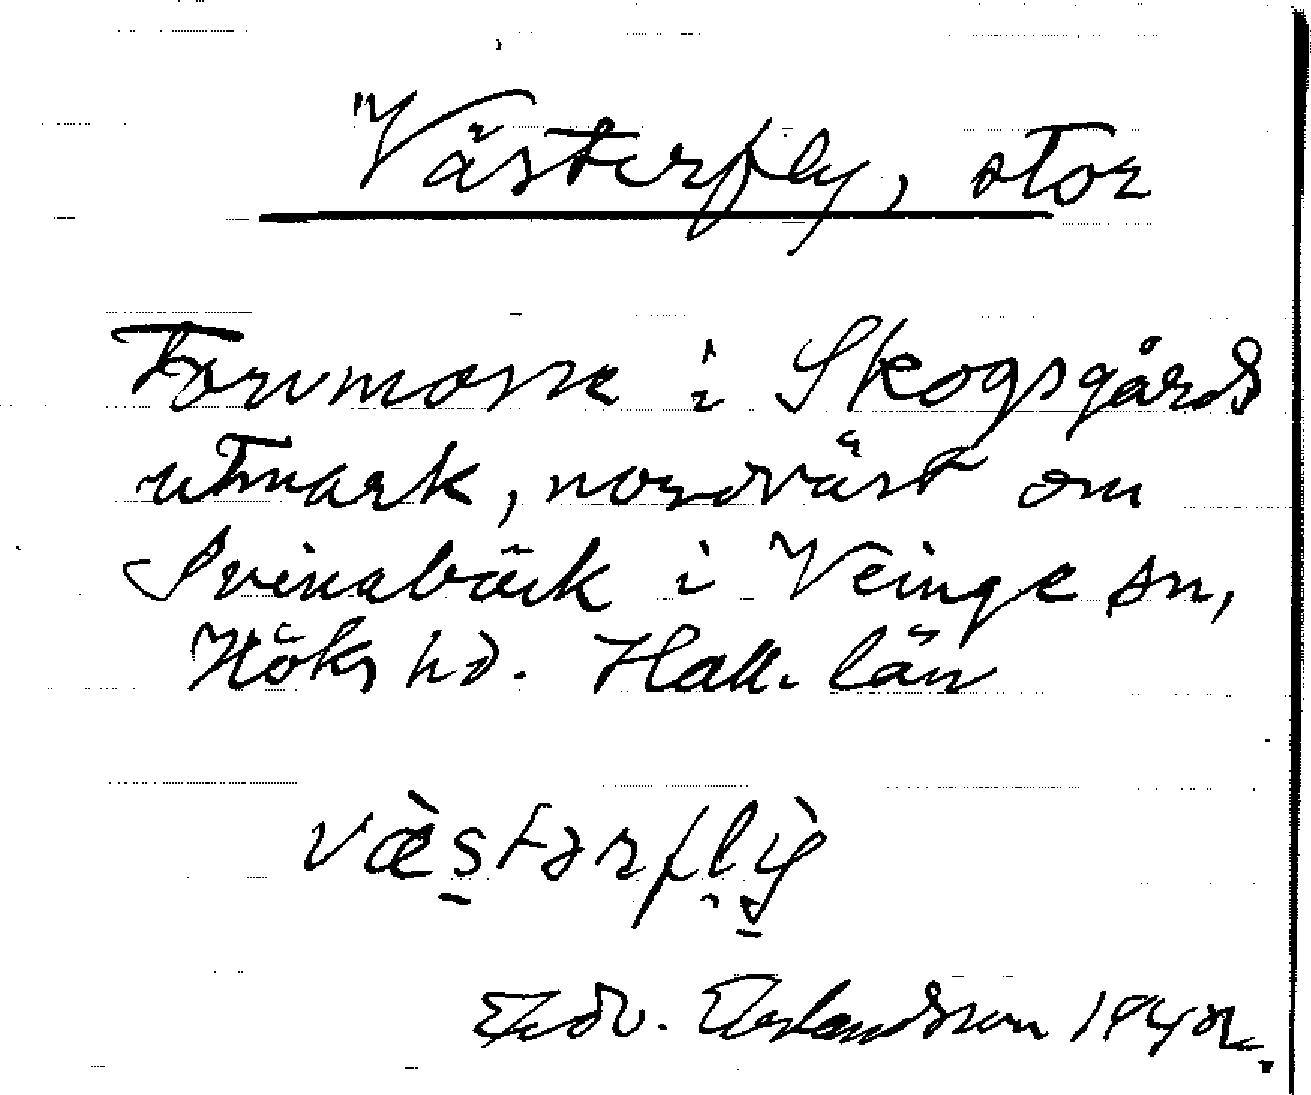 Västerfly, stor
Torvmosse i Skogsgårds
utmark, nordväst om
Svinabäck i Veinge sn,
Höks hd. Hall. län
væ̀stərflỳ
Edv. Erlandsson 1942.